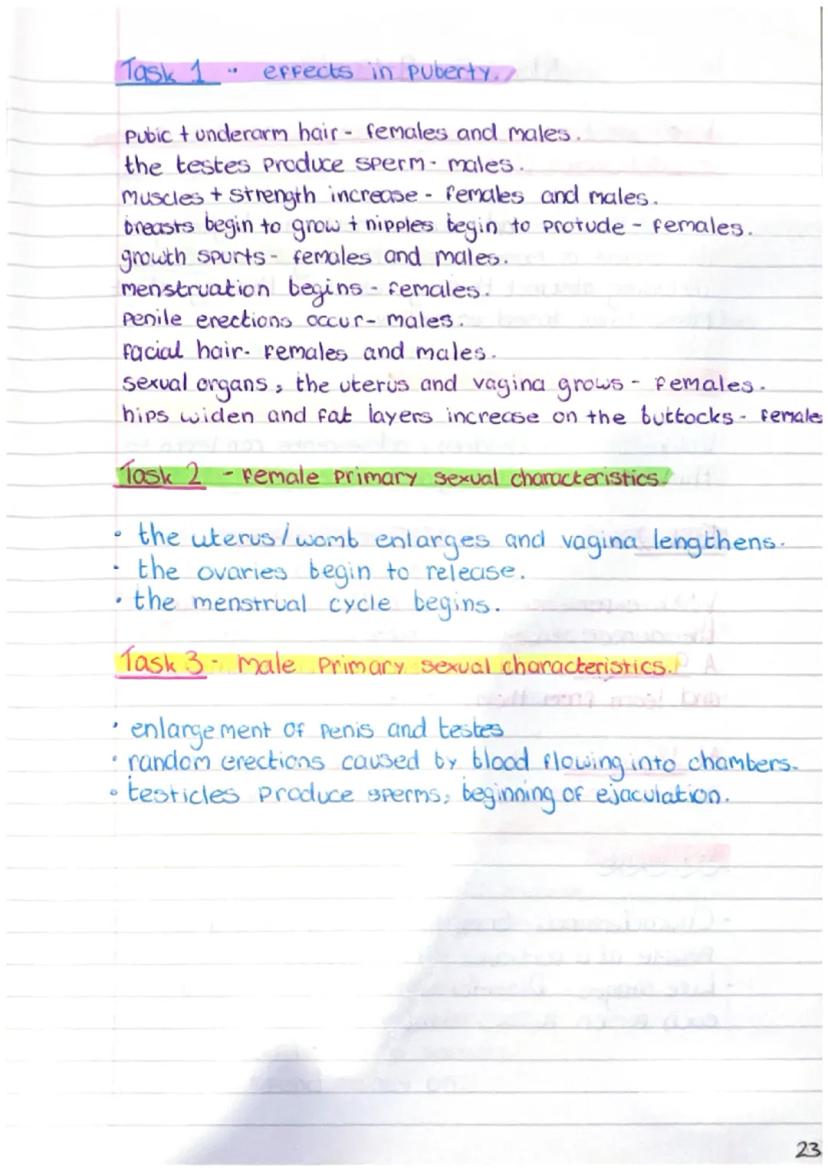 Task 1 - effects in puberty.
pubic + underarm hair - females and males.
the testes produce sperm - males.
muscles + strength increase - females and males.
breasts begin to grow + nipples begin to protude - females.
growth spurts - females and males.
menstruation begins - females.
penile erections occur - males.
facial hair - females and males.
sexual organs, the uterus and vagina grows - females.
hips widen and fat layers increase on the buttocks - females
Task 2 - female primary sexual characteristics.
• the uterus/womb enlarges and vagina lengthens.
• the ovaries begin to release.
• the menstrual cycle begins.
Task 3 - Male primary sexual characteristics.
• enlargement of penis and testes
• random erections caused by blood flowing into chambers.
• testicles produce sperms, beginning of ejaculation.
23